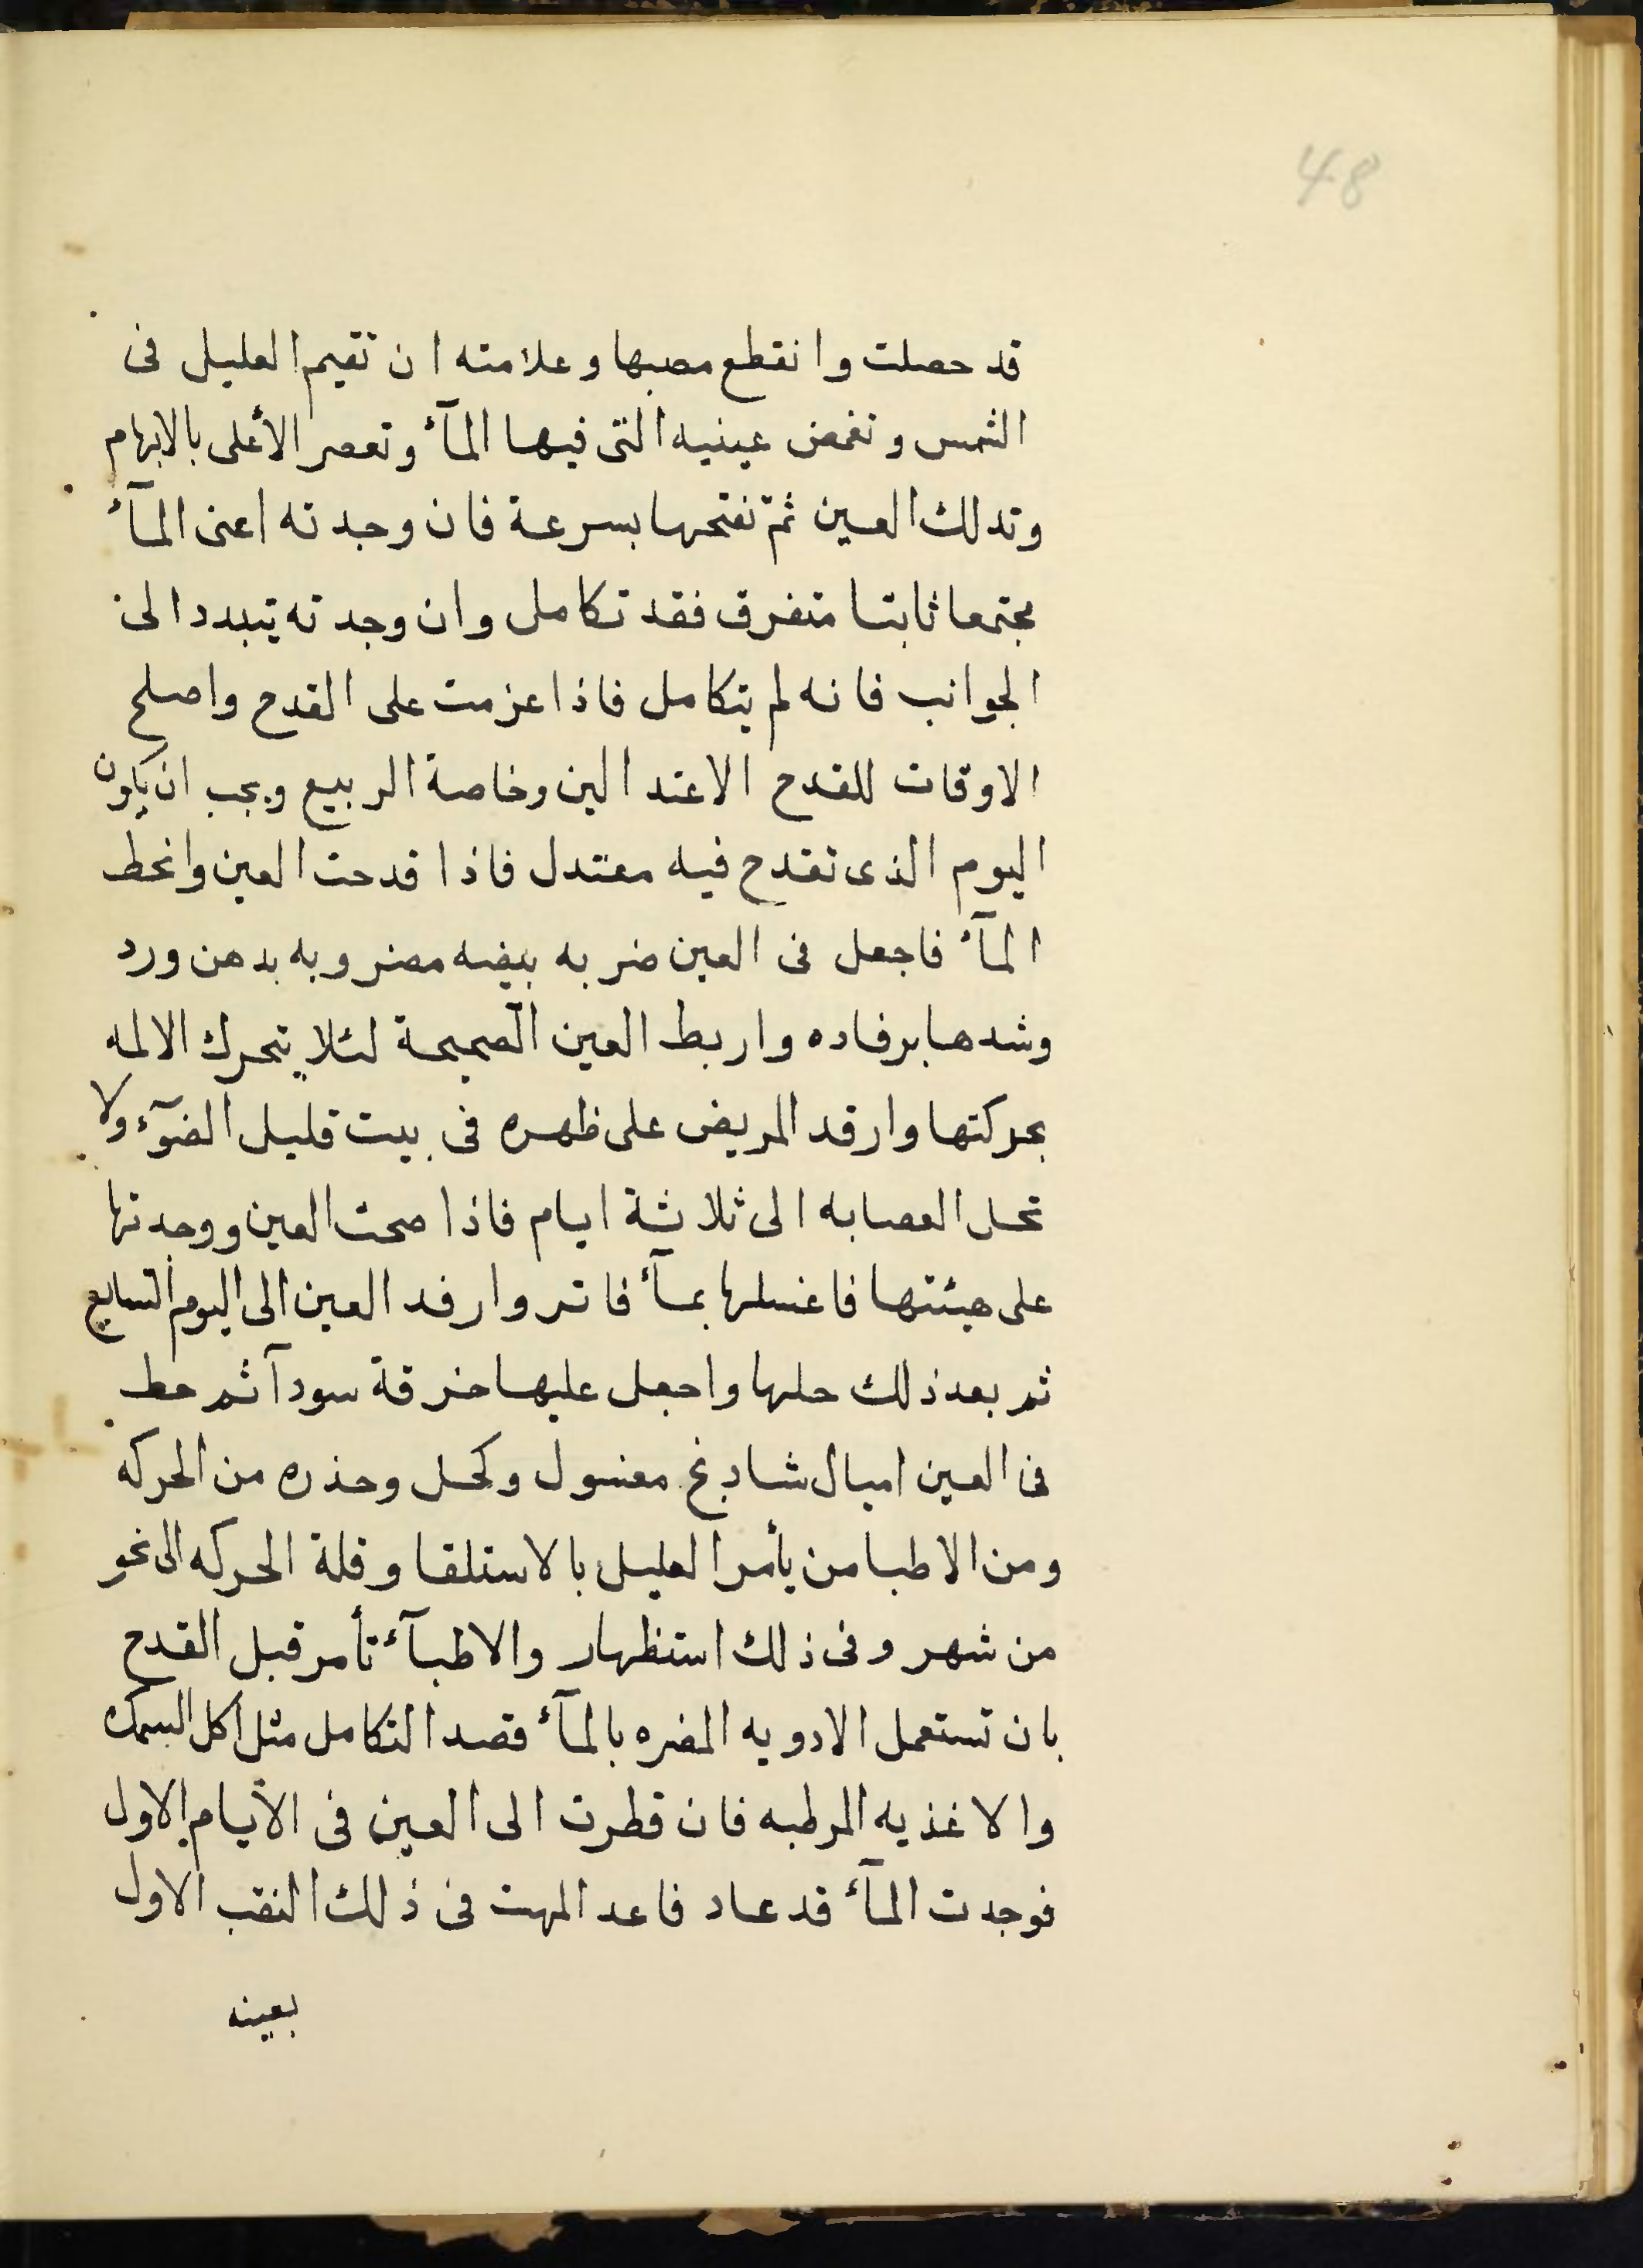 48
قد حصلت وانقطع مصبها وعلامته ان تقيم العليل فى
الشمس وتغمض عينيه التى فيها المآء وتعصر الأعلى بالابهام
وتدلك العين ثم تفتحها بسرعة فان وجدته اعنى المآء
مجتمعا ثابتا متفرق فقد تكامل وان وجدته يتبدد الى
الجوانب فانه لم يتكامل فاذا عزمت على القدح واصلح
الاوقات للقدح الاعتدالين وخاصة الربيع ويجب ان يكون
اليوم الذى تقدح فيه معتدل فاذا قدحت العين وانحط
المآء فاجعل فى العين ضربه بيضه مضروبه بدهن ورد
وشدها برفاده واربط العين الصحيحة لئلا يتحرك الالمه
بحركتها وارقد المريض على ظهره فى بيت قليل الضوء ولا
تحل العصابه الى ثلاثة ايام فاذا صحت العين ووجدتها
على هيئتها فاغسلها بمآء فاتر وارفد العين الى اليوم السابع
ثم بعد ذلك حلها واجعل عليها خرقة سودآ ثم حط
فى العين اميال شادنج مغسول وكحل وحذره من الحركه
ومن الاطبا من يأمر العليل بالاستلقا وقلة الحركه الى نحو
من شهر وفى ذلك استظهار والاطبآء تأمر قبل القدح
بان تستعمل الادويه المضره بالمآء قصد التكامل مثل اكل السمك
والاغذيه المرطبه فان قطرت الى العين فى الأيام الاول
فوجدت المآء قد عاد فاعد المهت فى ذلك النقب الاول
بعينه